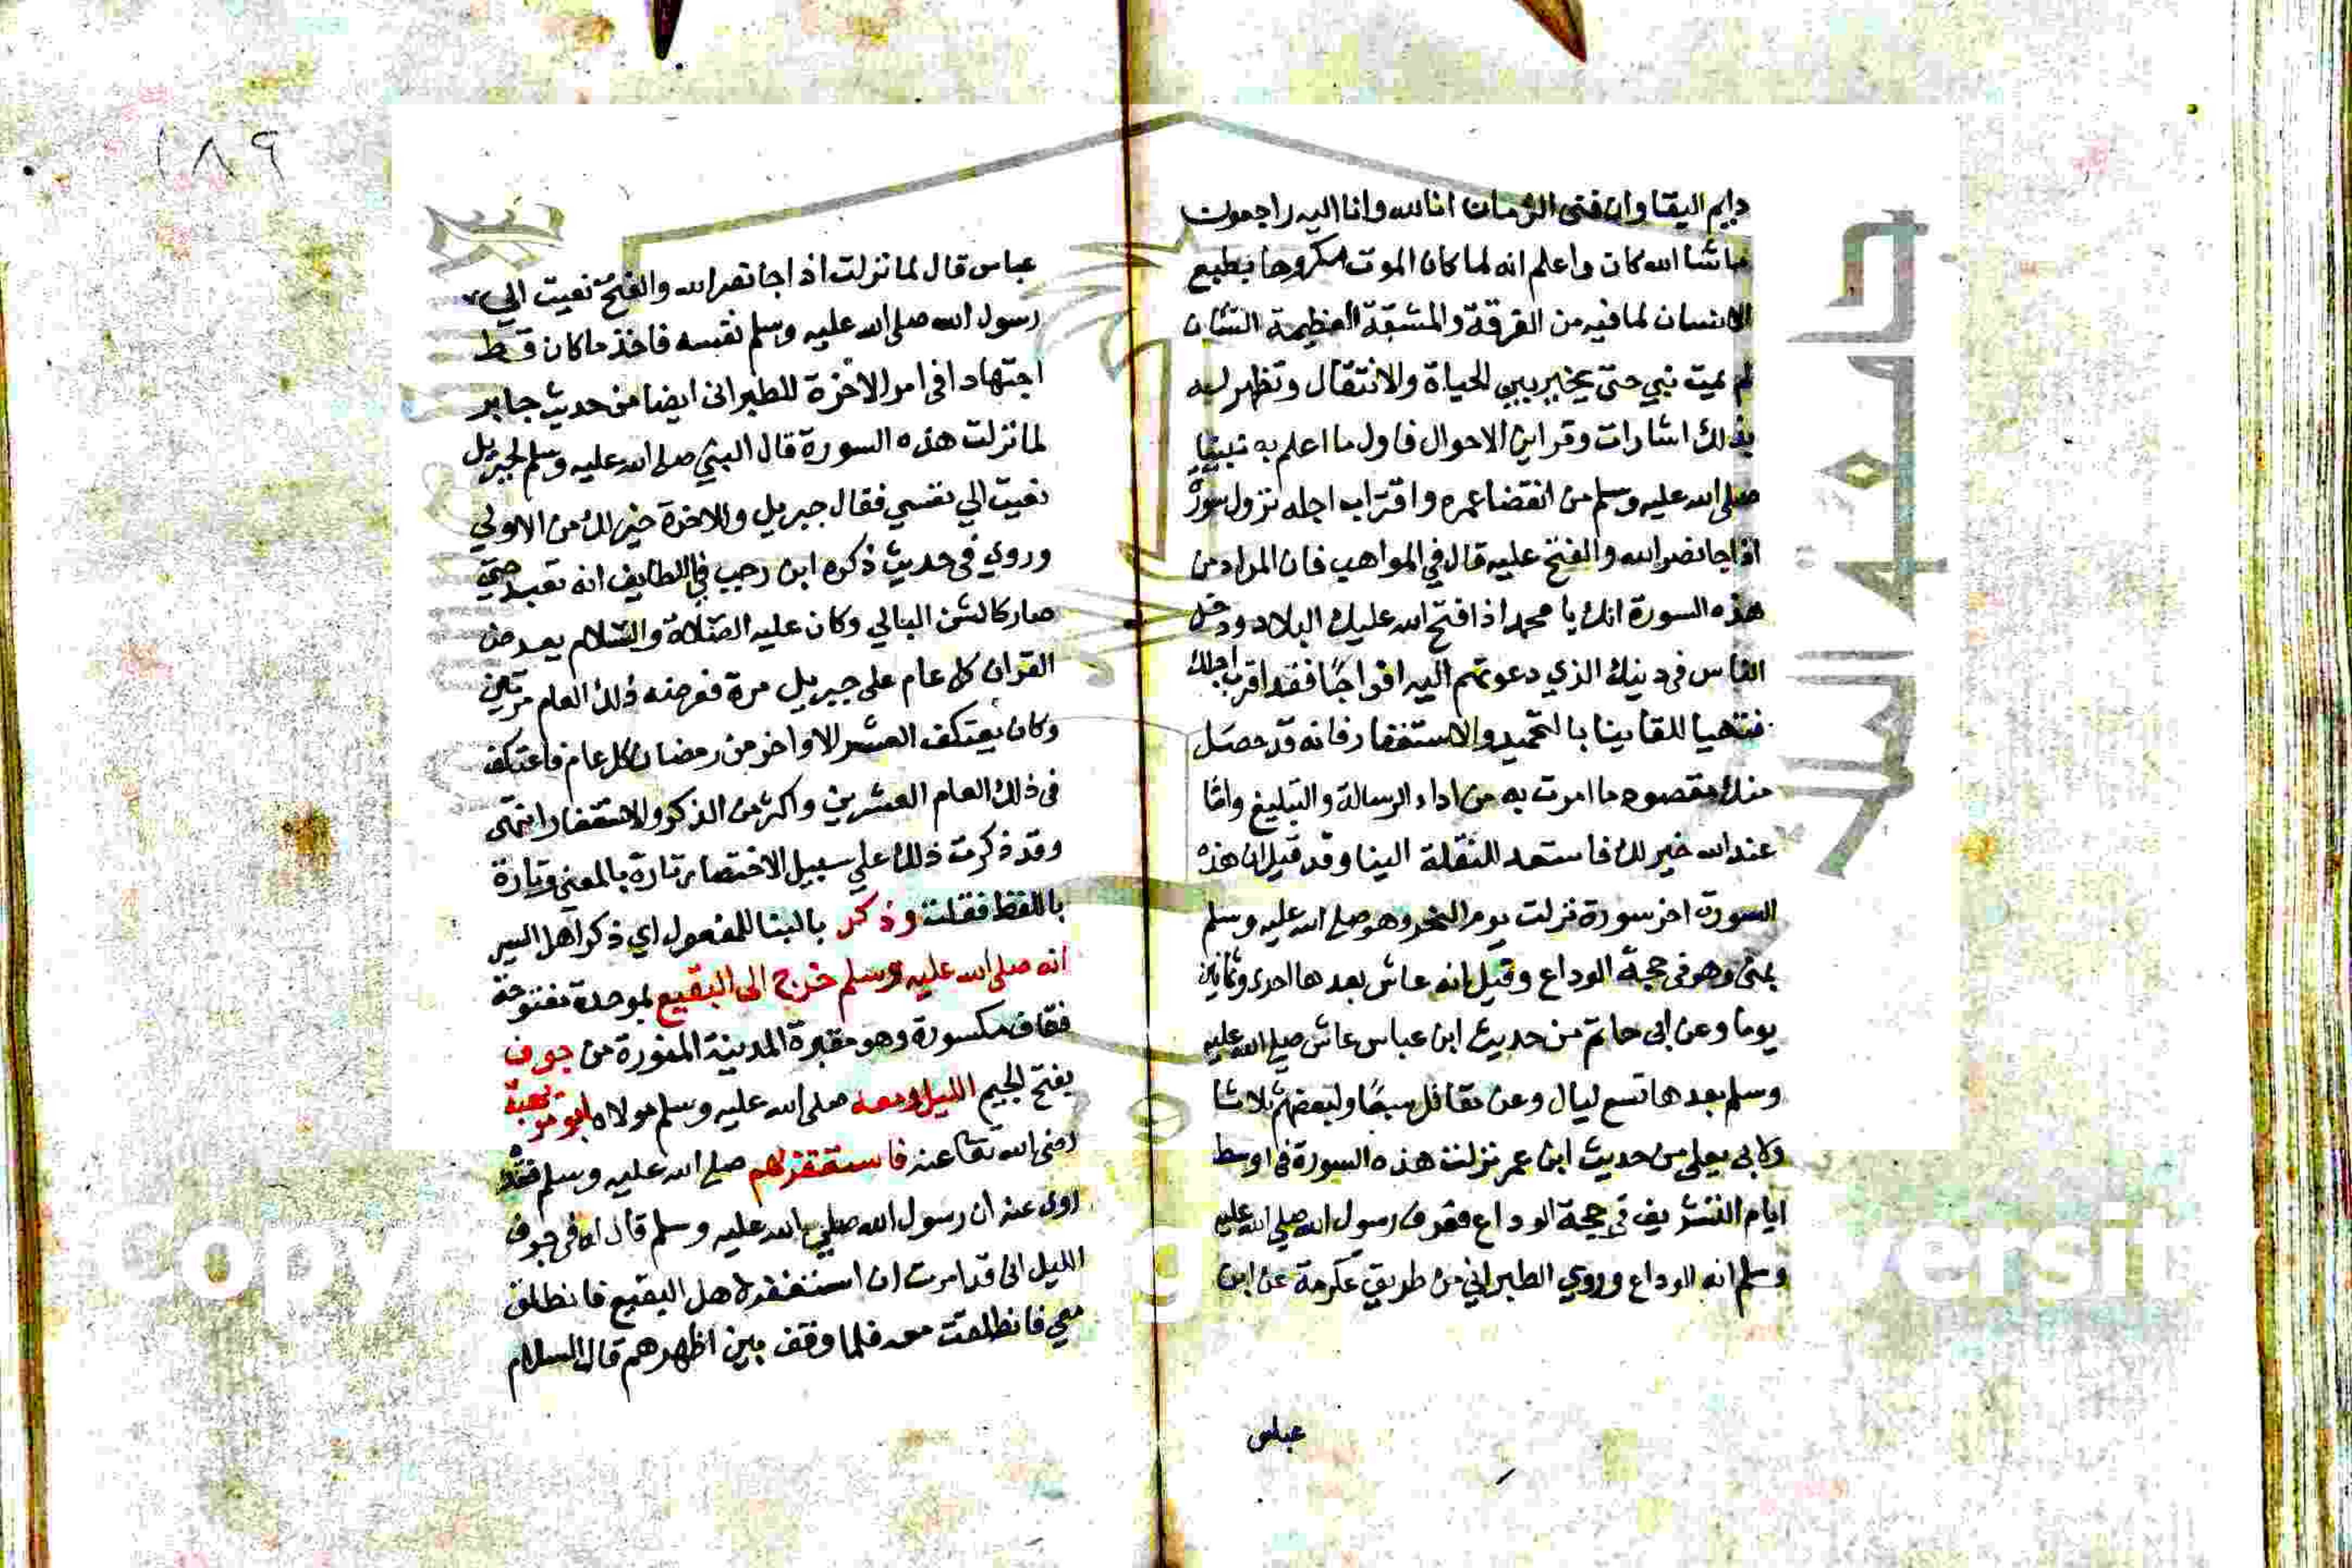 دايم البقا وان فنى الزمان انا لله وانا اليه راجعون
ماشا الله كان واعلم انه لما كان الموت مكروها بطبع
الانسان لما فيه من الفرقة والمشقة العظيمة الشان
لم يمت نبي حتى يخير بين الحياة والانتقال وتظهر له
بذلك اشارات وقراين الاحوال فاول ما اعلم به نبينا
صلى الله عليه وسلم من انقضا عمره واقتراب اجله نزول سورة
اذا جا نصر الله والفتح عليه قال في المواهب فان المراد من
هذه السورة انك يا محمد اذا فتح الله عليك البلاد ودخل
الناس في دينك الذي دعوتهم اليه افواجًا فقد اقرب اجلك
فتهيا للقاينا بالتحميد والاستغفار فانه قد حصل
منك مقصود ما امرت به من اداء الرسالة والتبليغ واما
عند الله خير لك فاستعد للنقلة الينا وقد قيل ان هذه
السورة اخر سورة نزلت يوم النحر وهو صلى الله عليه وسلم
بمنى وهو في حجة الوداع وقيل انه عاش بعدها احدى وثمانين
يوما وعن ابى حاتم من حديث ابن عباس عاش صلى الله عليه
وسلم بعدها تسع ليال وعن مقاتل سبعًا ولبعضهم ثلاثا
ولابى يعلى من حديث ابن عمر نزلت هذه السورة في اوسط
ايام التشريق في حجة الوداع فعرف رسول الله صلى الله عليه
وسلم انه الوداع وروي الطبراني من طريق عكرمة عن ابن
عباس
١٨٩
عباس قال لما نزلت اذا جا نصر الله والفتح نعيت الي
رسول الله صلى الله عليه وسلم نفسه فاخذ ما كان قط
اجتهادا في امر الاخرة للطبراني ايضا من حديث جابر
لما نزلت هذه السورة قال النبي صلى الله عليه وسلم لجبريل
نعيت الي نفسي فقال جبريل وللاخرة خير لك من الاولي
وروي في حديث ذكره ابن رجب في اللطايف انه تعبد حتى
صار كالشن البالي وكان عليه الصلاة والسلام يعرض
القران كل عام على جبريل مرة فعرضه ذلك العام مرتين
وكان يعتكف العشر الاواخر من رمضان كل عام فاعتكف
في ذلك العام العشرين واكثر من الذكر والاستغفار انتهى
وقد ذكرت ذلك علي سبيل الاختصار تارة بالمعنى وتارة
باللفظ فقلت وذكر بالبنا للمفعول اي ذكر اهل السير
انه صلى الله عليه وسلم خرج الى البقيع بموحدة مفتوحة
فقاف مكسورة وهو مقبرة المدينة المنورة من جوف
بفتح الجيم الليل ومعه صلى الله عليه وسلم مولاه ابو مويهبة
رضى الله تعا عنه فاستغفر لهم صلى الله عليه وسلم فقد
روى عنه ان رسول الله صلى الله عليه وسلم قال له في جوف
الليل انى قد امرت ان استغفر لاهل البقيع فانطلق
معي فانطلقت معه فلما وقف بين اظهرهم قال السلام